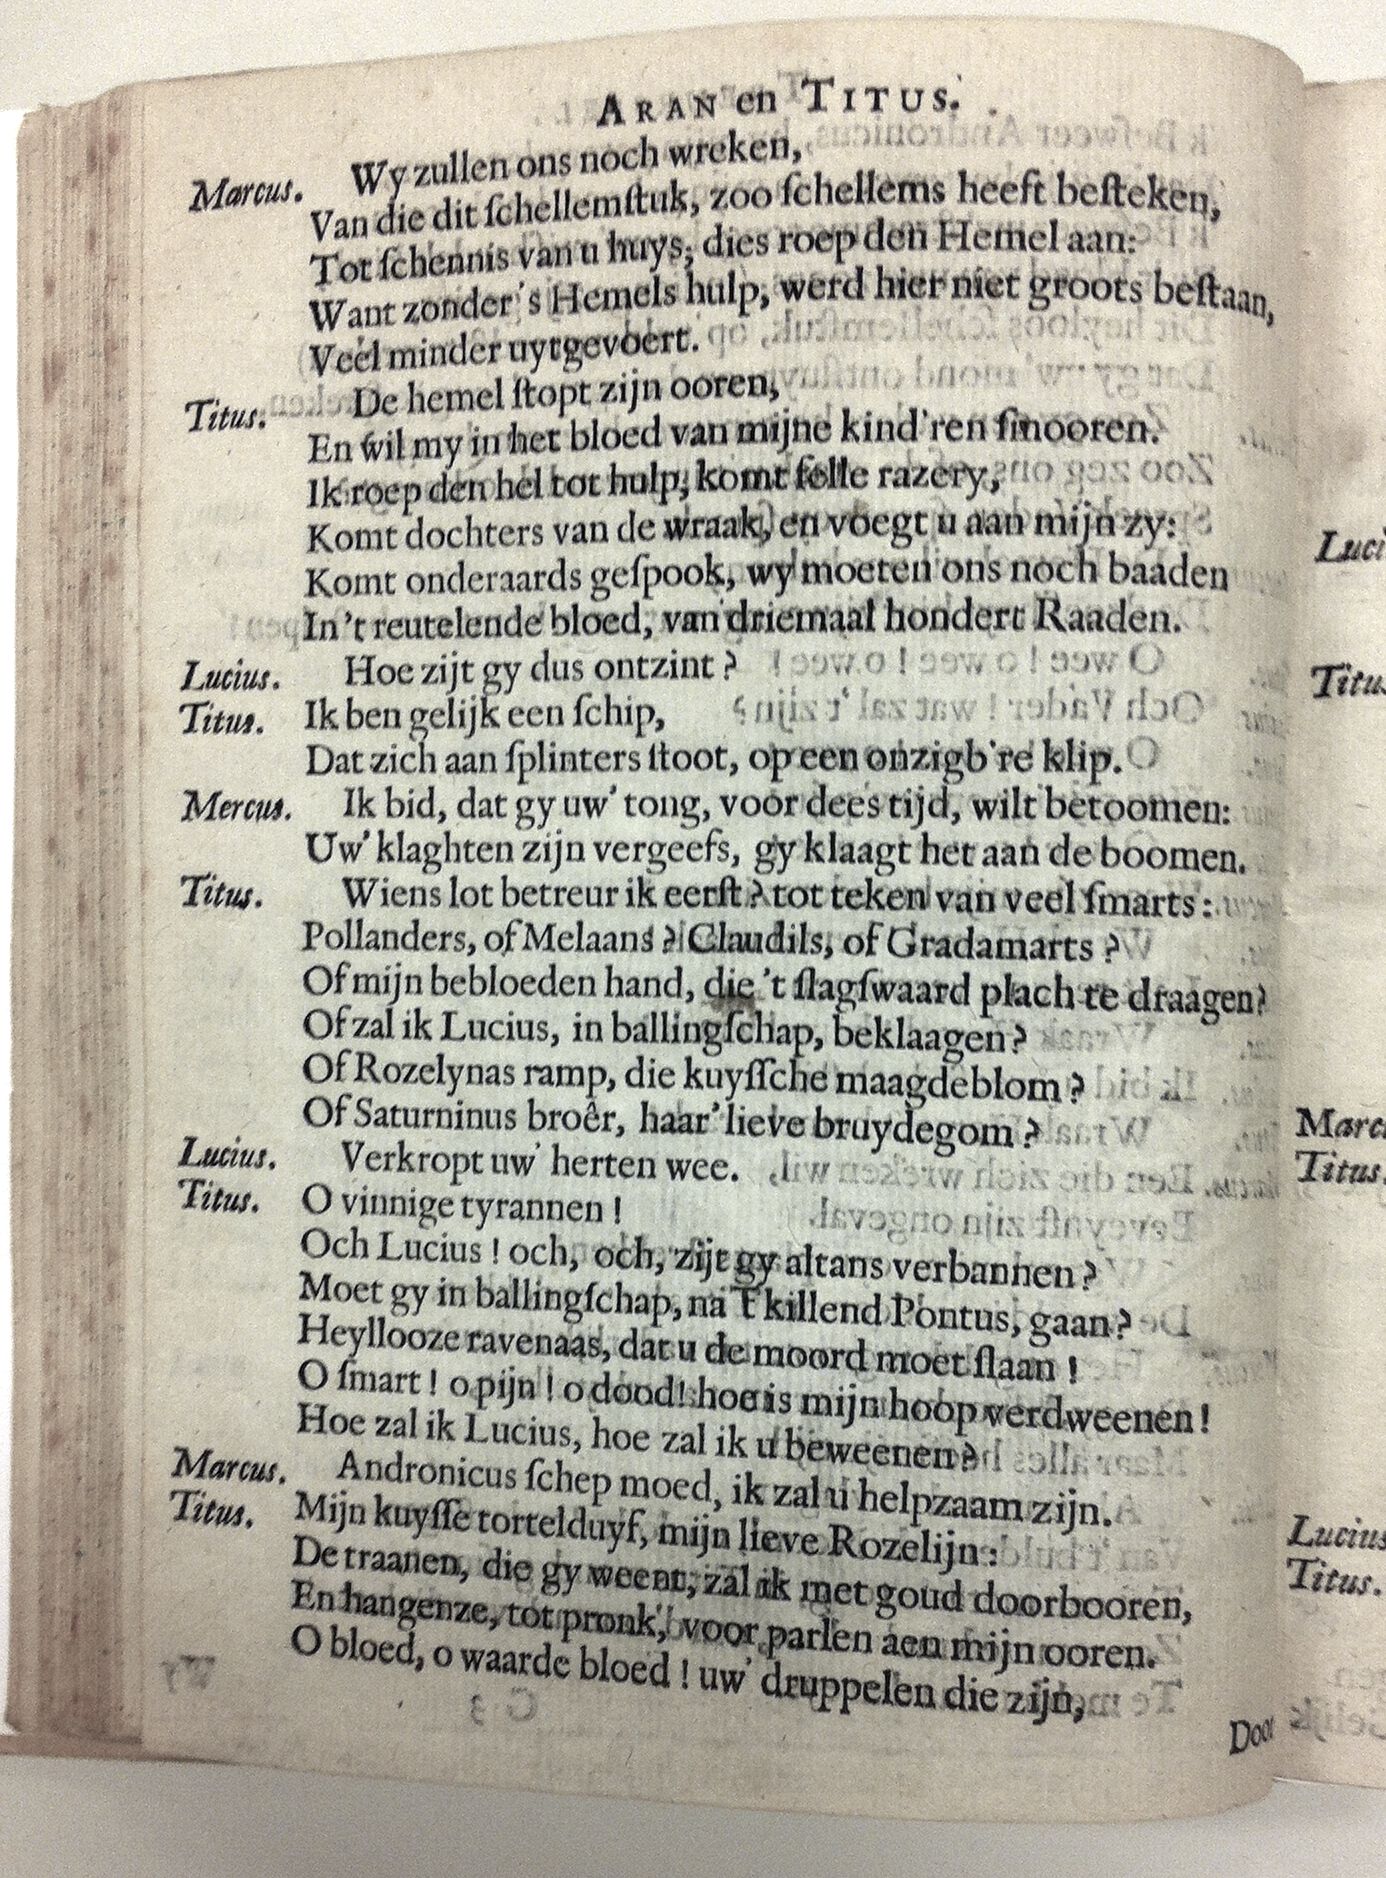 ARAN en TITUS.
Marcus. Wy zullen ons noch wreken,
Van die dit ſchellemſtuk, zoo ſchellems heeft beſteken,
Tot ſchennis van u huys; dies roep den Hemel aan:
Want zonder 's Hemels hulp, werd hier niet groots beſtaan,
Veel minder uytgevoert.
Titus. De hemel ſtopt zijn ooren,
En wil my in het bloed van mijne kind'ren ſmooren.
Ik roep den hel tot hulp; komt felle razery,
Komt dochters van de wraak, en voegt u aan mijn zy:
Komt onderaards geſpook, wy moeten ons noch baaden
In 't reutelende bloed, van driemaal hondert Raaden.
Lucius. Hoe zijt gy dus ontzint?
Titus. Ik ben gelijk een ſchip,
Dat zich aan ſplinters ſtoot, op een onzigb're klip.
Mercus. Ik bid, dat gy uw' tong, voor dees tijd, wilt betoomen:
Uw' klaghten zijn vergeefs, gy klaagt het aan de boomen.
Titus. Wiens lot betreur ik eerſt? tot teken van veel ſmarts:
Pollanders, of Melaans? Claudils, of Gradamarts?
Of mijn bebloeden hand, die 't ſlagſwaard plach te draagen?
Of zal ik Lucius, in ballingſchap, beklaagen?
Of Rozelynas ramp, die kuyſſche maagdeblom?
Of Saturninus broêr, haar' lieve bruydegom?
Lucius. Verkropt uw' herten wee.
Titus. O vinnige tyrannen!
Och Lucius! och, och, zijt gy altans verbannen?
Moet gy in ballingſchap, na 't killend Pontus, gaan?
Heyllooze ravenaas, dat u de moord moet ſlaan!
O ſmart! o pijn! o dood! hoe is mijn hoop verdweenen!
Hoe zal ik Lucius, hoe zal ik u beweenen?
Marcus. Andronicus ſchep moed, ik zal u helpzaam zijn.
Titus. Mijn kuyſſe tortelduyf, mijn lieve Rozelijn:
De traanen, die gy weent, zal ik met goud doorbooren,
En hangenze, tot pronk, voor parlen aen mijn ooren.
O bloed, o waarde bloed! uw' druppelen die zijn,
Door
Luci
Titu
Marc
Titus.
Lucius
Titus.